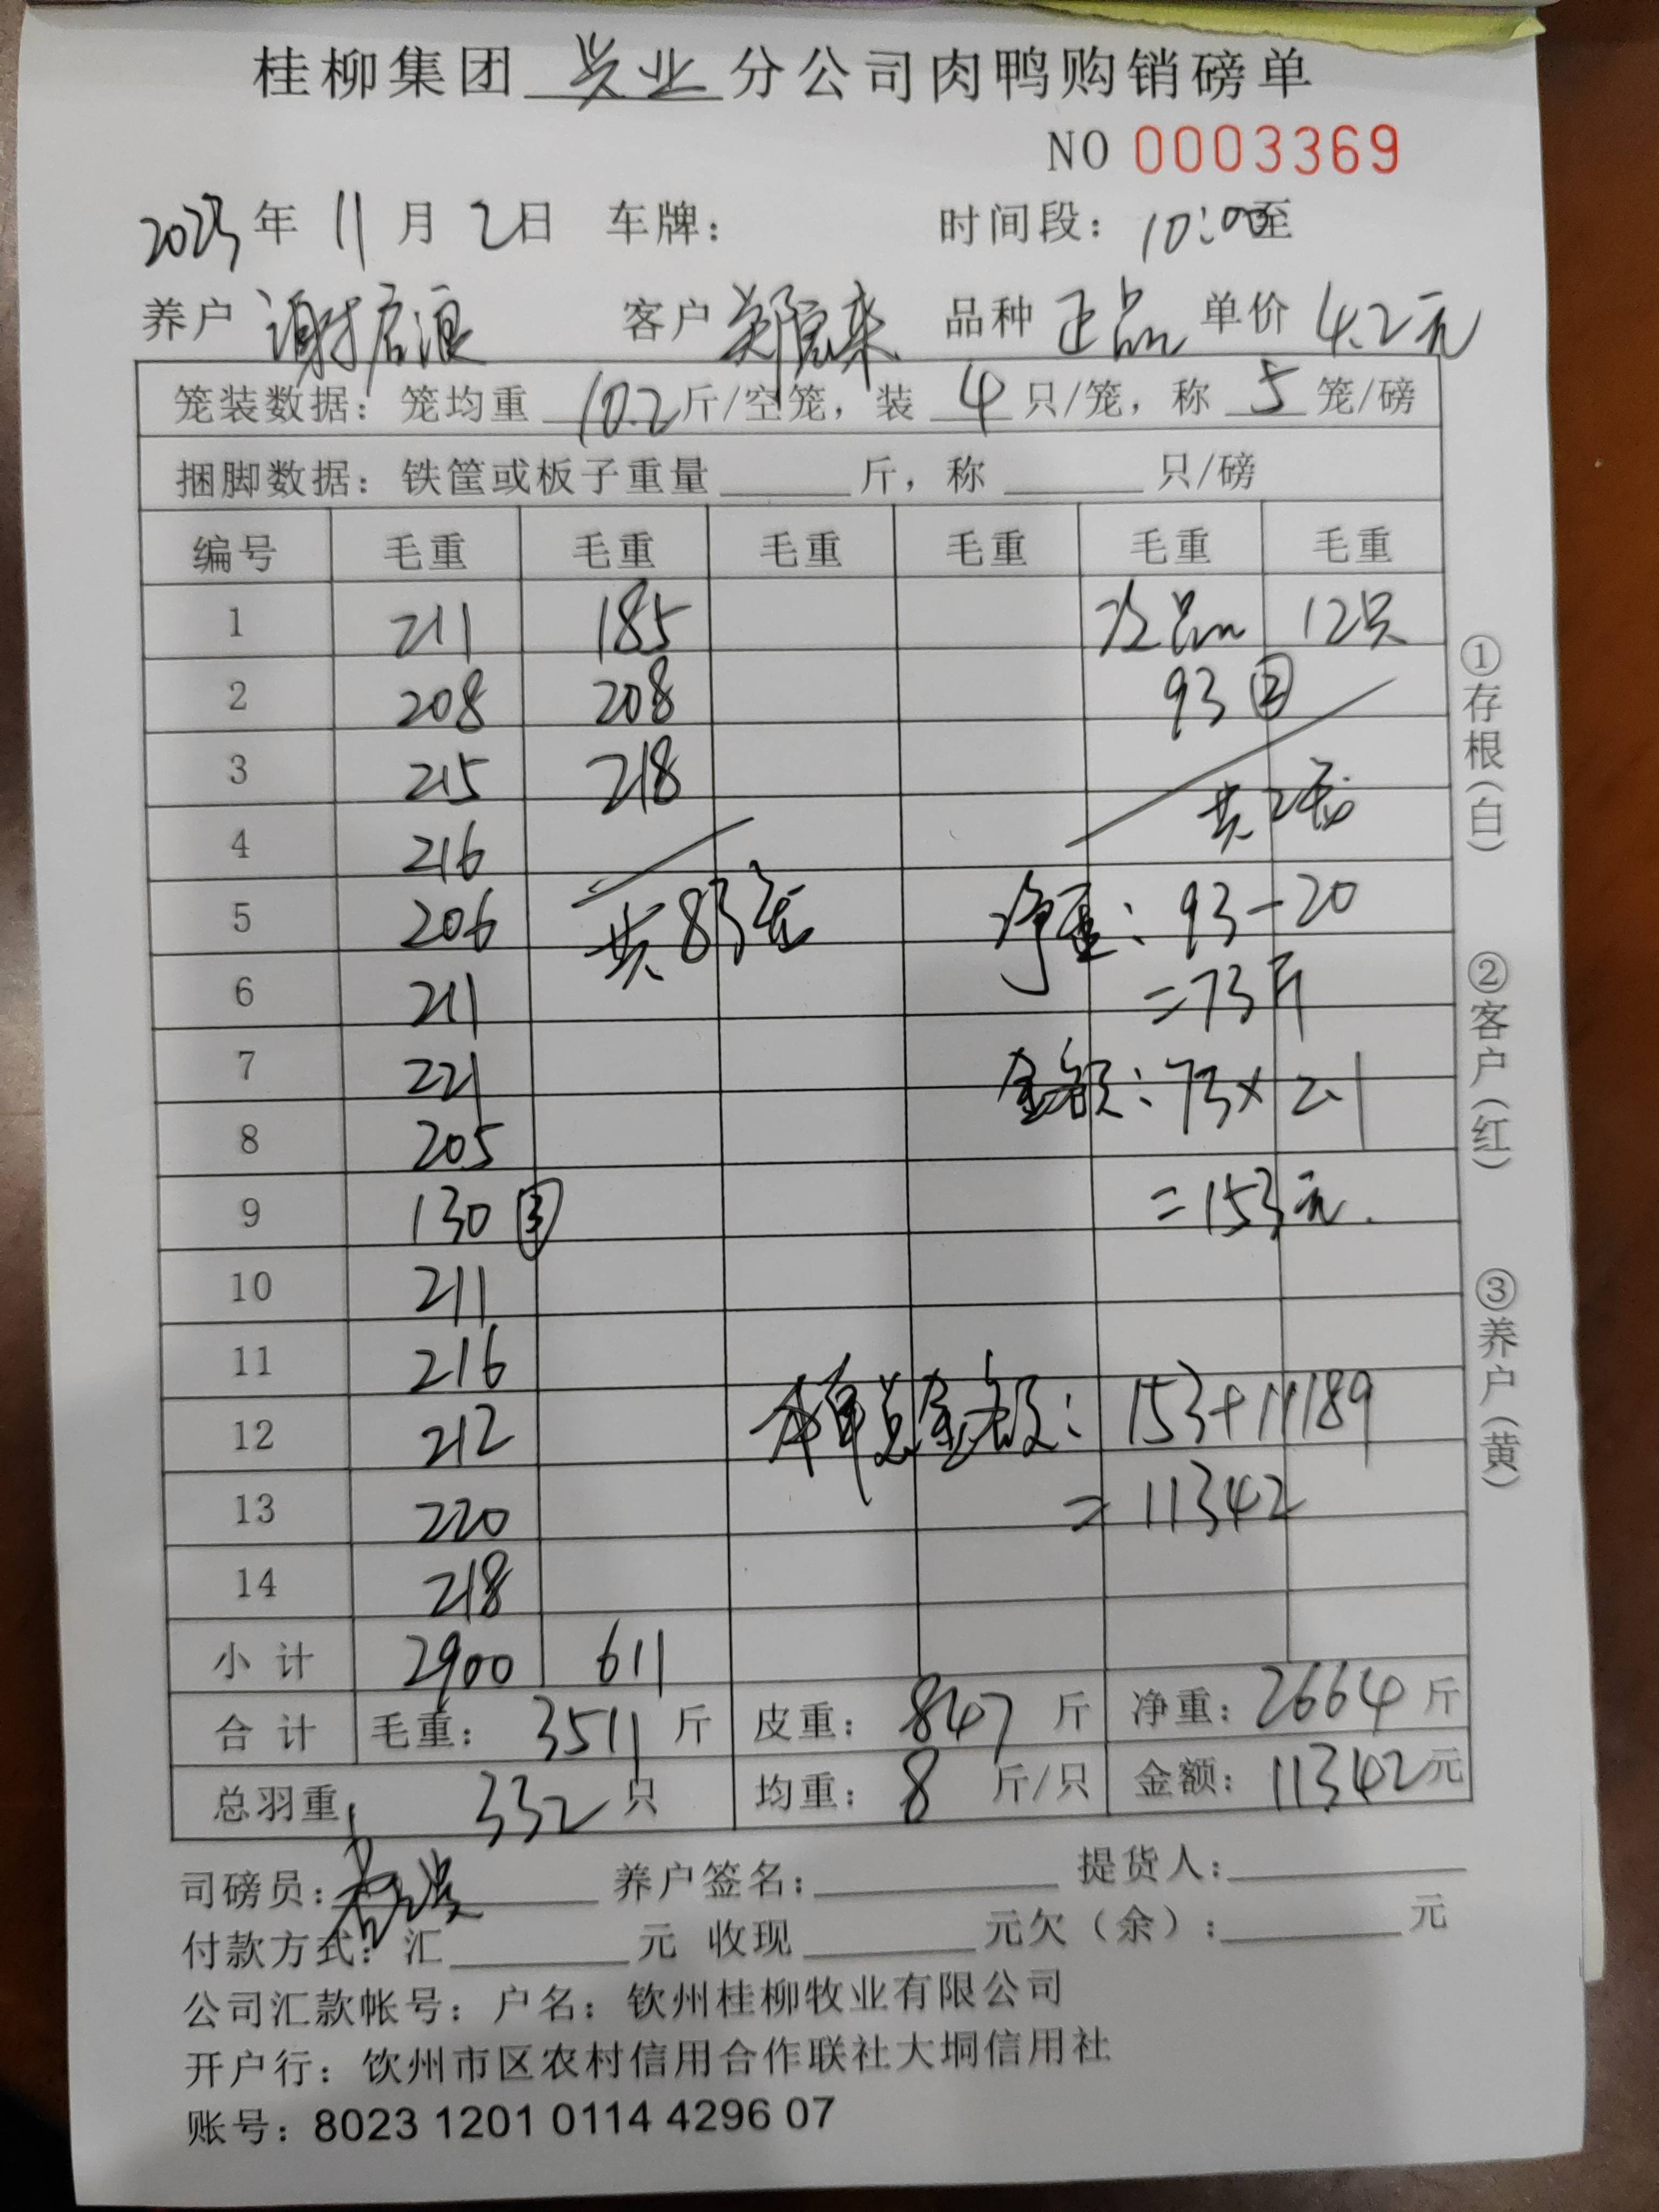 桂柳集团 兴业 分公司肉鸭购销磅单
NO 0003369
2023年 11月 2日 车牌： 时间段：10:00至
养户 谢启浪 客户 郑 品种 正品 单价 4.2元
笼装数据：笼均重 10.2 斤/空笼，装 4 只/笼，称 5 笼/磅
捆脚数据：铁筐或板子重量 斤，称 只/磅
编号 毛重 毛重 毛重 毛重 毛重 毛重
1 211 185 次品 12只
2 208 208 93 ②
3 215 218
4 216 共2
5 206 共83 净重：93-20
6 211 =73斤
7 221 金额：73×2.1
8 205
9 130 ③ =153元.
10 211
11 216
12 212 本单总金额：153+11189
13 220 =11342
14 218
小计 2900 611
合计 毛重：3511斤 皮重：847斤 净重：2664斤
总羽重 332只 均重：8斤/只 金额：11342元
司磅员： 养户签名： 提货人：
付款方式：汇 元 收现 元欠（余）： 元
公司汇款帐号：户名：钦州桂柳牧业有限公司
开户行：钦州市区农村信用合作联社大垌信用社
账号：8023 1201 0114 4296 07
①存根（白）
②客户（红）
③养户（黄）